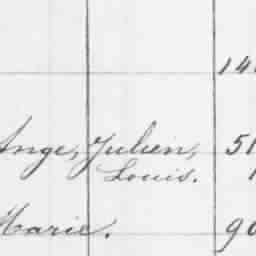 14
Ange, Julien, 51
Louis. 1
Marie. 90